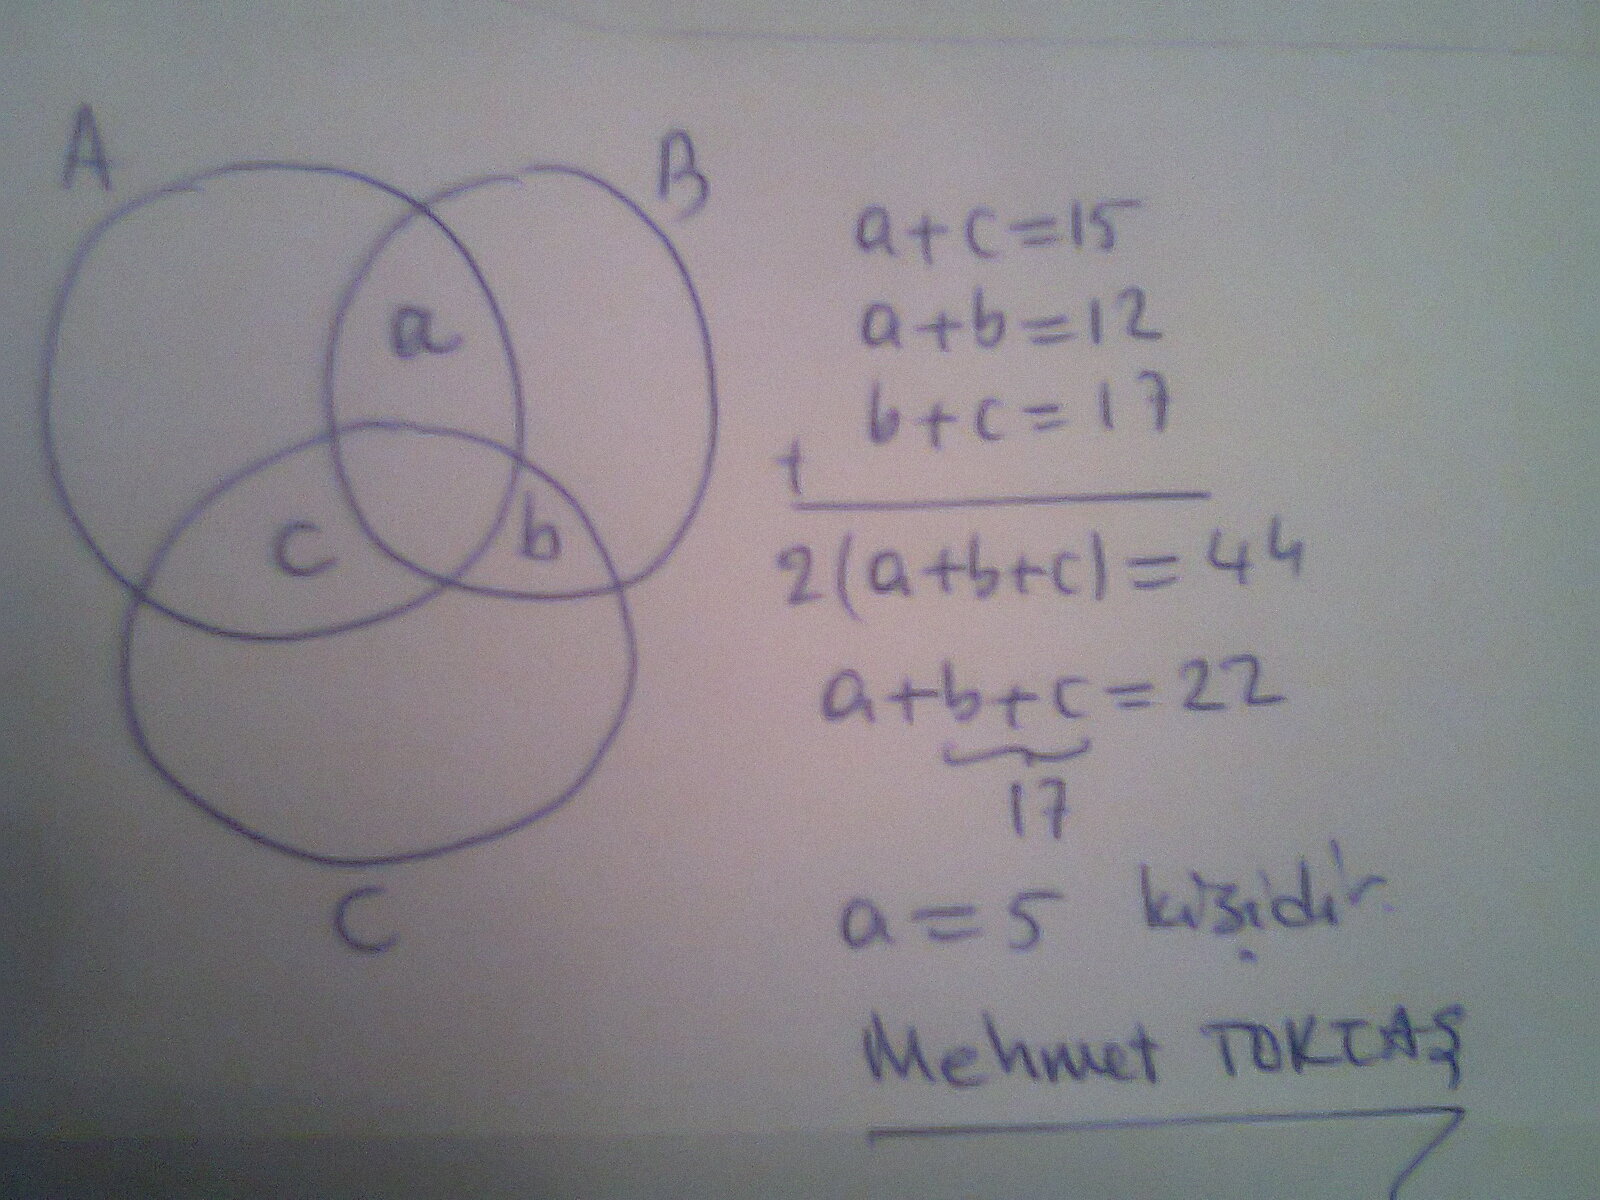 A
B
a
c
b
C
a+c=15
a+b=12
b+c=17
+
2(a+b+c)=44
a+b+c=22
17
a=5 kişidir.
Mehmet TOKTAŞ